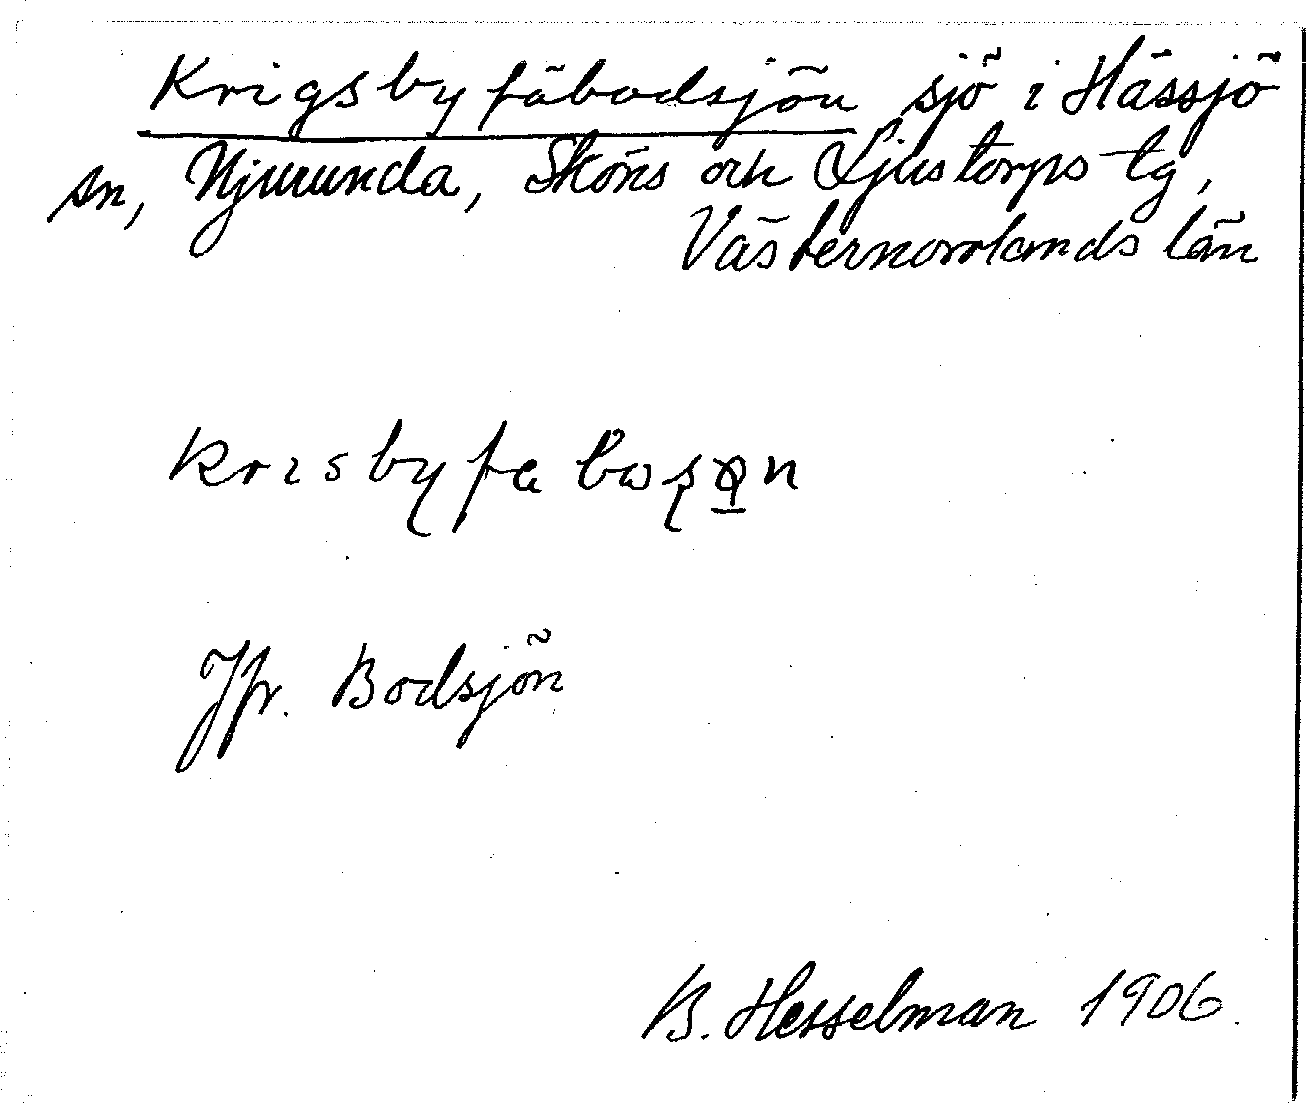 Krigsbyfäbodsjön sjö i Hässjö
sn, Njurunda, Sköns och Ljustorps tg,
Västernorrlands län
krisbyfabo
Jfr. Bodsjön
B. Hesselman 1906.